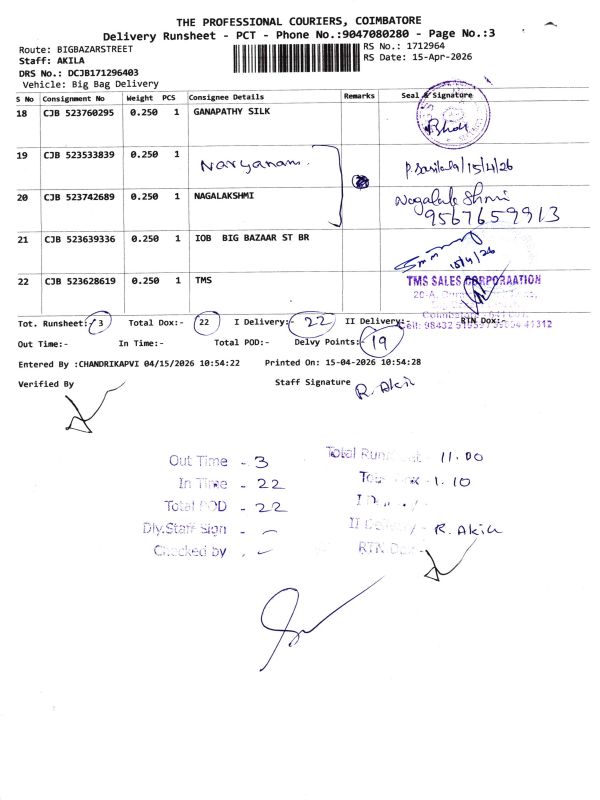 THE PROFESSIONAL COURIERS, COIMBATORE
Delivery Runsheet - PCT - Phone No.:9047080280 - Page No.:3
Route: BIGBAZARSTREET
RS No.: 1712964
Staff: AKILA
RS Date: 15-Apr-2026
DRS No.: DCJB171296403
Vehicle: Big Bag Delivery
S No Consignment No Weight PCS Consignee Details Remarks Seal & Signature
18 CJB 523760295 0.250 1 GANAPATHY SILK
19 CJB 523533839 0.250 1 Naryanam. 15/4/26
20 CJB 523742689 0.250 1 NAGALAKSHMI Nagalakshmi
9567659913
21 CJB 523639336 0.250 1 IOB BIG BAZAAR ST BR 15/4/26
22 CJB 523628619 0.250 1 TMS TMS SALES CORPORAATION
Tot. Runsheet:- 3 Total Dox:- 22 I Delivery:- 22 II Delivery:- RTN Dox:-
Out Time:- In Time:- Total POD:- Delvy Points:- 19
Entered By :CHANDRIKAPVI 04/15/2026 10:54:22 Printed On: 15-04-2026 10:54:28
Verified By Staff Signature R. Akila
Out Time - 3 Total Run - 11.00
In Time - 22 - 1.10
Total POD - 22
Dly.Staff Sign - II Delivery - R. Akila
Checked by RTN Dox -